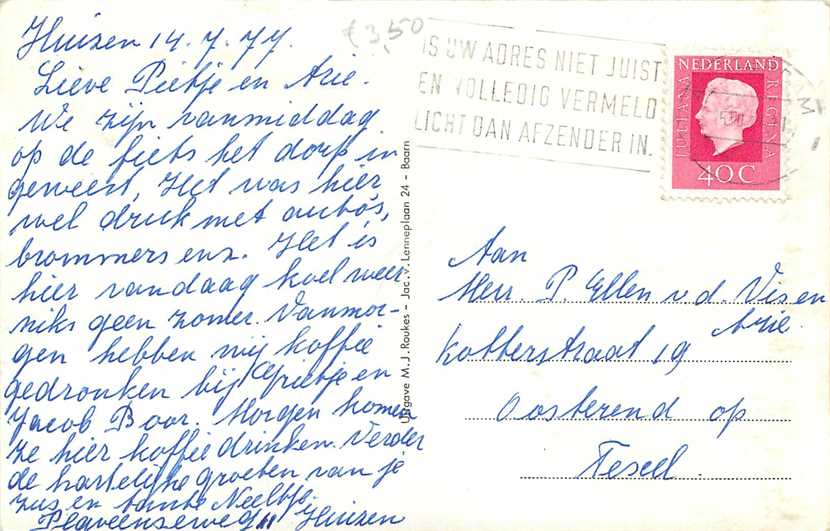 Huizen 14.7.77.
Lieve Pietje en Arie.
We zijn vanmiddag
op de fiets het dorp in
geweest, Het was hier
wel druk met auto's,
brommers enz. Het is
hier vandaag koel weer
niks geen zomer. Vanmor-
gen hebben wij koffie
gedronken bij Grietje en
Jacob Boor. Morgen komen
ze hier koffie drinken. Verder
de hartelijke groeten van je
zus en tante Neeltje.
11 Huizen
€3,50
IS UW ADRES NIET JUIST
EN VOLLEDIG VERMELD
LICHT DAN AFZENDER IN.
NEDERLAND
JULIANA REGINA
40C
Uitgave M.J. Roukes - Jac. v. Lenneplaan 24 - Baarn
Aan
Mevr. P. Ellen v.d. Vis en
Arie.
Kotterstraat 19
Oosterend op
Texel.